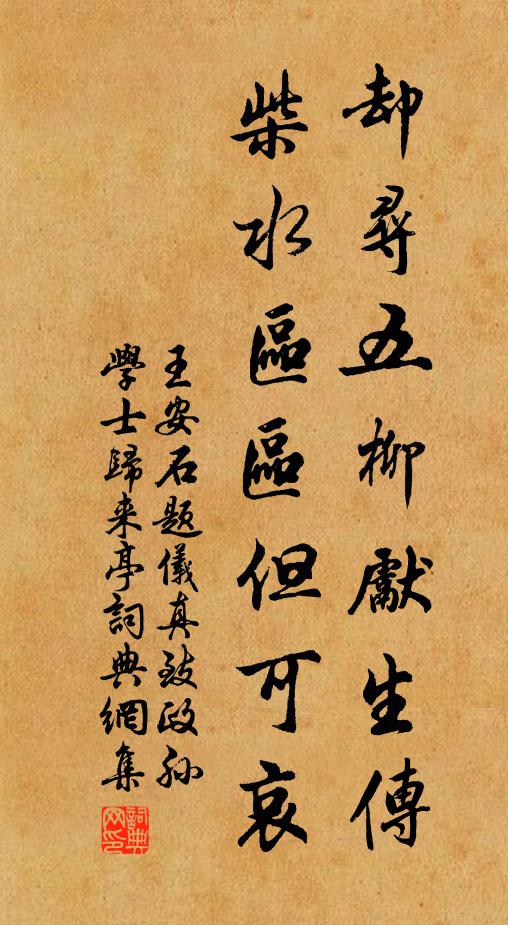 却尋五柳獻生傳
柴水區區但可哀
王安石題儀真致政孫
學士歸来亭詞典網集
詞典网印